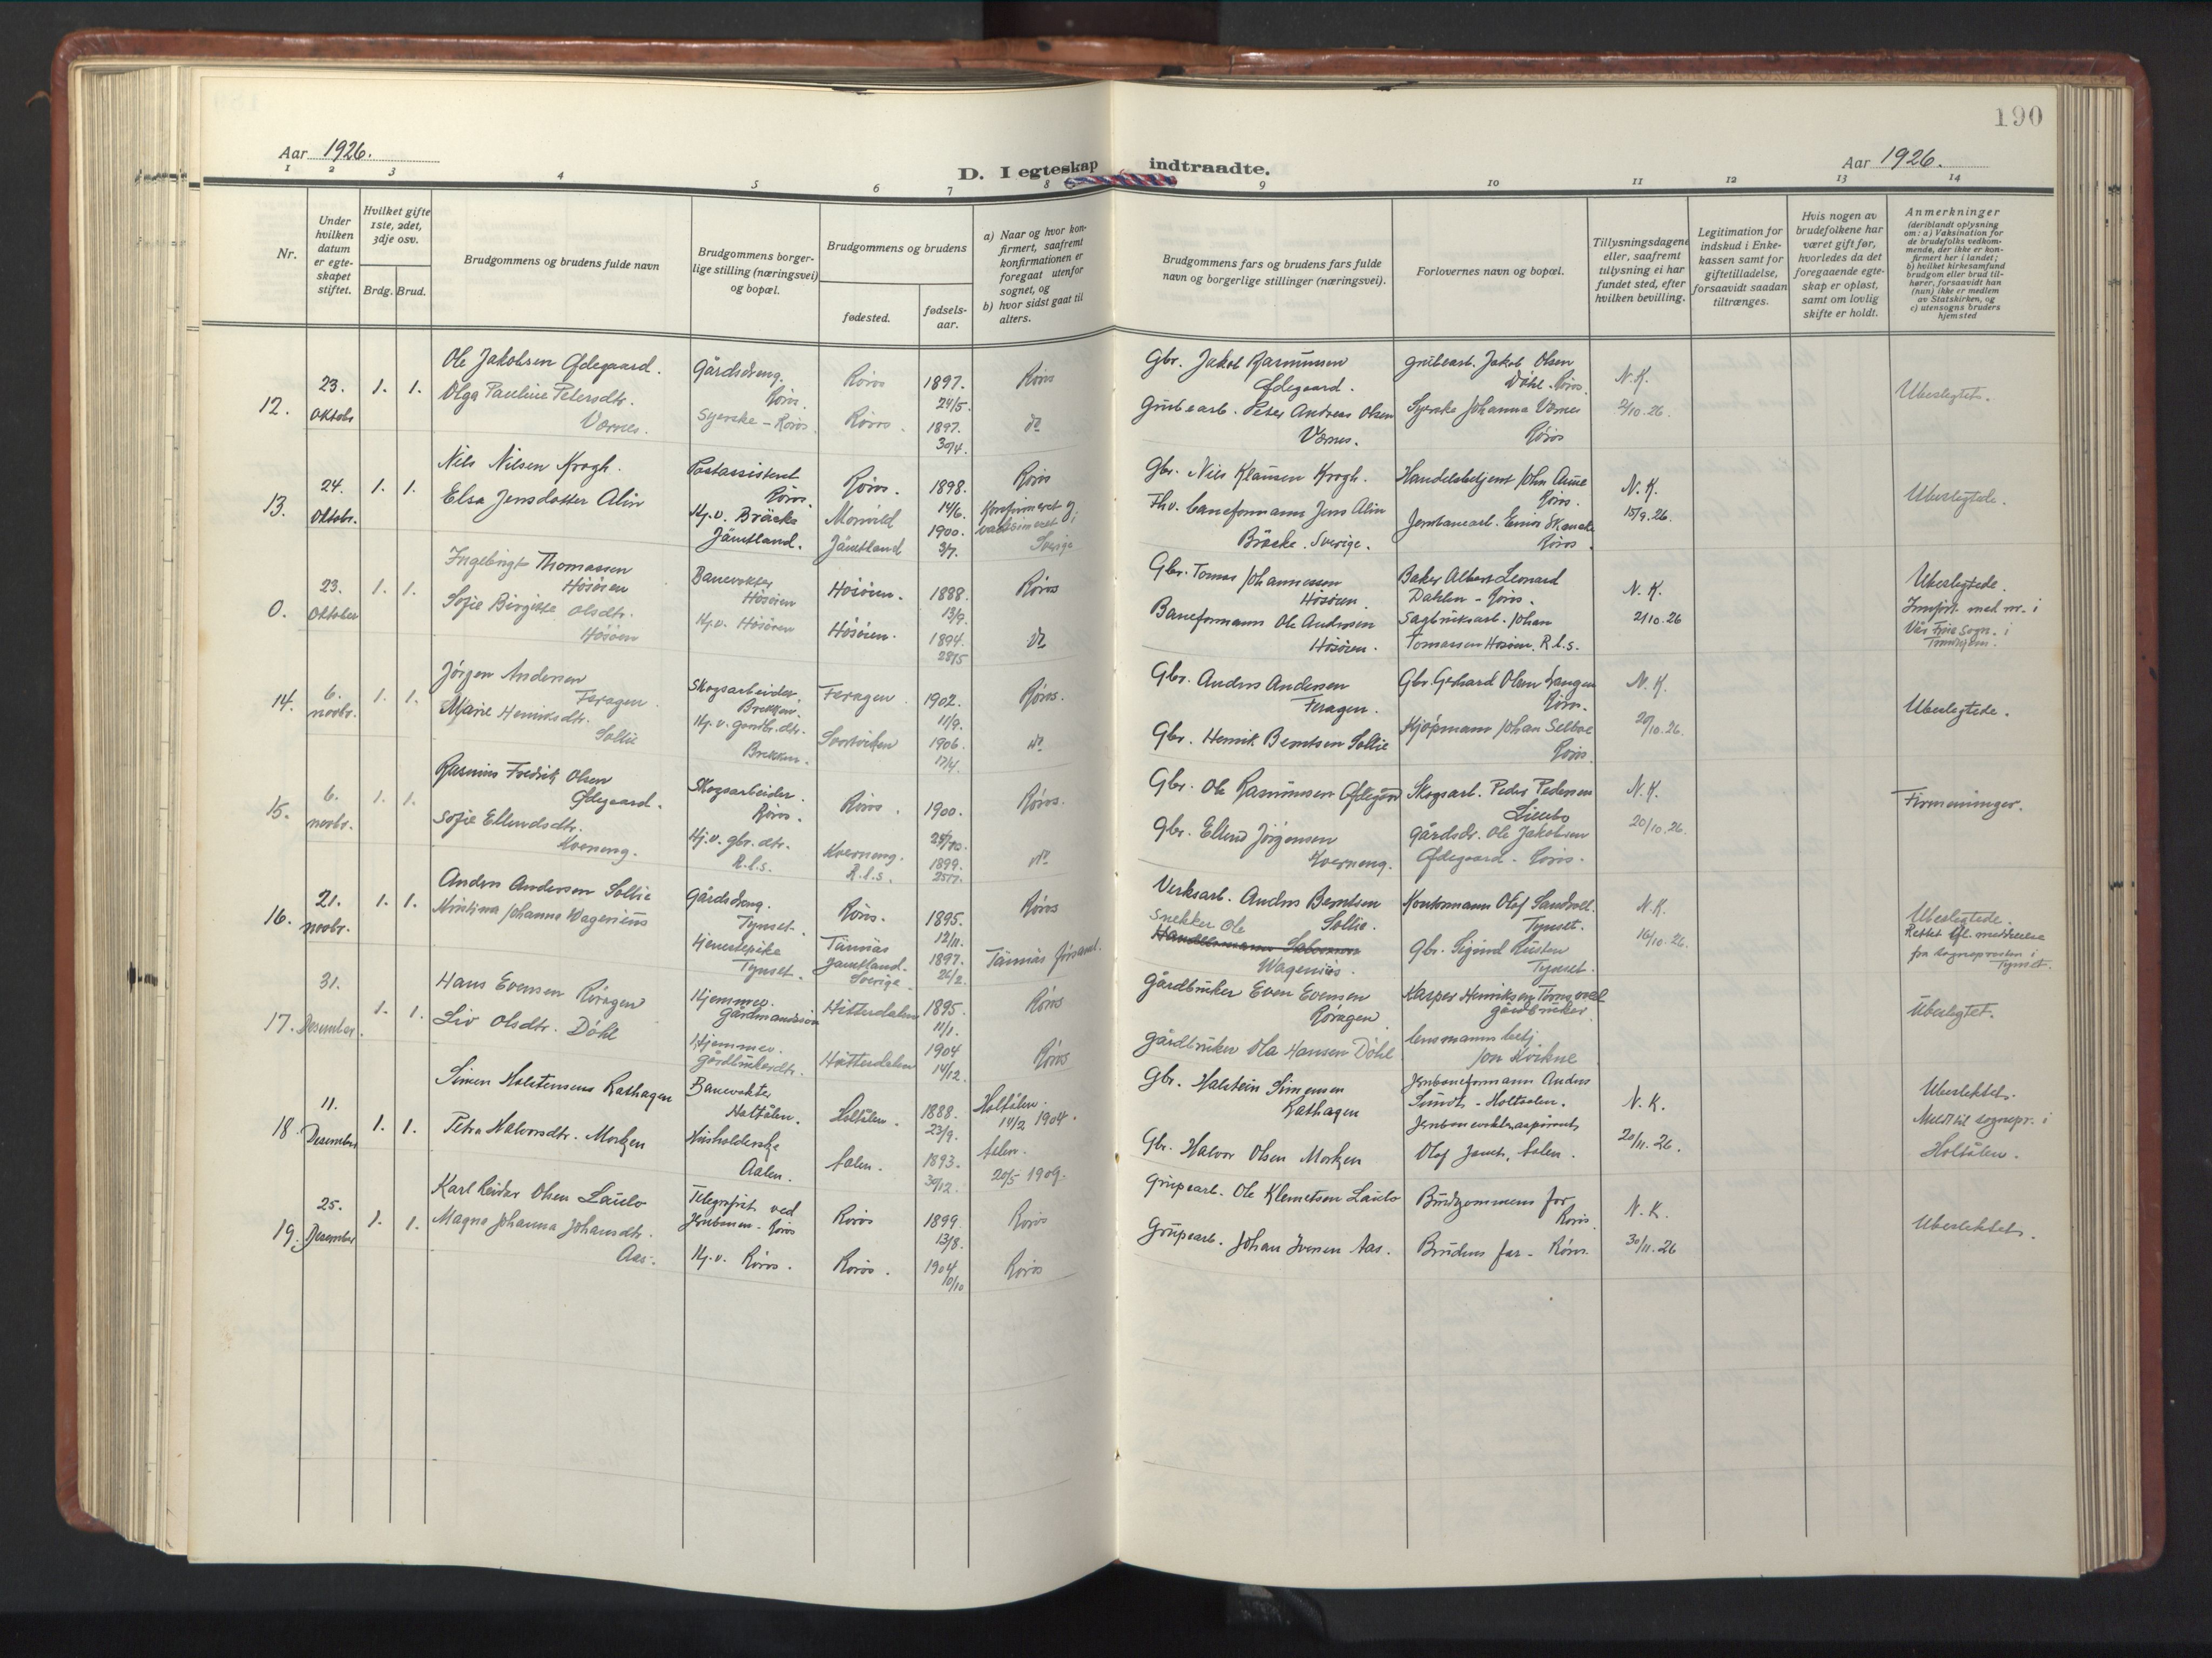 190
Aar 1926.
D. I egteskap indtraadte.
Aar 1926.
1 2 3 4 5 6 7 8 9 10 11 12 13 14
Nr.
Under hvilken datum er egteskapet stiftet.
Hvilket gifte 1ste, 2det, 3dje osv.
Brdg. Brud.
Brudgommens og brudens fulde navn
Brudgommens borger-
lige stilling (næringsvei)
og bopæl.
Brudgommens og brudens
fødested.
fødsels-
aar.
a) Naar og hvor kon-
firmert, saafremt
konfirmationen er
foregaat utenfor
sognet, og
b) hvor sidst gaat til
alters.
Brudgommens fars og brudens fars fulde
navn og borgerlige stillinger (næringsvei).
Forlovernes navn og bopæl.
Tillysningsdagene
eller, saafremt
tillysning ei har
fundet sted, efter
hvilken bevilling.
Legitimation for
indskud i Enke-
kassen samt for
giftetilladelse,
forsaavidt saadan
tiltrænges.
Hvis nogen av
brudefolkene har
været gift før,
hvorledes da det
foregaaende egte-
skap er opløst,
samt om lovlig
skifte er holdt.
Anmerkninger
(deriblandt oplysning
om: a) Vaksination for
de brudefolks vedkom-
mende, der ikke er kon-
firmert her i landet;
b) hvilket kirkesamfund
brudgom eller brud til-
hører, forsaavidt han
(hun) ikke er medlem
av Statskirken, og
c) utensogns bruders
hjemsted
12. 23. Oktobr 1. 1.
Ole Jakobsen Ødegaard.
Olga Pauline Petersdtr.
Værnes.
Gårdsdreng.
Røros.
Syerske - Røros.
Røros
Røros.
1897.
24/5.
1897.
30/4.
Røros
do
Gbr. Jakob Rasmussen
Ødegaard.
Grubearb. Peter Andreas Olsen
Værnes.
Grubearb. Jakob Olsen
Døhl. Røros.
Syerske Johanna Værnes
Røros
N.K.
2/10.26.
Ubeslegtet.
13. 24. Oktobr. 1. 1.
Nils Nilsen Krogh.
Elsa Jensdatter Alin
Postassistent
Røros.
Hj.v. Bräcke
Jämtland.
Røros.
Jämtland
1898.
14/6.
1900.
3/7.
Røros
Konfirmeret og
vaksineret i
Sverige
Gbr. Nils Klausen Krogh.
Fhv. baneformann Jens Alin
Bräcke. Sverige.
Handelsbetjent John Aune
Røros.
Jernbanearb. Einar Skancke
Røros.
N.K.
15/9.26.
Ubeslegtede.
0. 23. Oktober 1. 1.
Ingebrigt Thomassen
Høsøien
Sofie Birgitte Olsdtr.
Høsøien
Banevokter
Høsøien
Hj.v. Høsøien
Høsøien.
Høsøien.
1888.
13/9.
1894.
28/5
Røros
do
Gbr. Tomas Johannessen
Høsøien.
Baneformann Ole Andersen
Høsøien.
Baker Albert Leonard
Dahlen - Røros.
Sagbruksarb. Johan
Tomassen Høsøien. R.l.s.
N.K.
2/10.26
Ubeslegtede.
Innført med nr. i
Vår Frue sogn. i
Trondhjem.
14. 6. novbr. 1. 1.
Jørgen Andersen
Feragen.
Marie Henriksdtr.
Sollie
Skogsarbeider.
Brekken.
Hj.v. gardbr.dtr.
Brekken.
Feragen
1902.
11/9.
1906.
17/4.
Røros.
do
Gbr. Anders Andersen
Feragen.
Gbr. Henrik Berntsen Sollie
Gbr. Gerhard Olsen Langen
Røros.
Kjøpmann Johan Selboe
Røros.
N.K.
20/10.26.
Ubeslegtede.
15. 6. novbr. 1. 1.
Rasmus Fredrik Olsen
Ødegaard.
Sofie Ellendsdtr.
Kverneng.
Skogsarbeider.
Røros.
Hj.v. gbr.dtr.
R.l.s.
Røros.
Kverneng.
R.l.s.
1900.
1899.
Røros.
do
Gbr. Ole Rasmussen Ødegård
Gbr. Ellend Jørgensen
Kverneng.
Skogsarb. Peder Pedersen
Lillebo
Gårdsdr. Ole Jakobsen
Ødegaard - Røros.
N.K.
20/10.26.
Firmenninger.
16. 21. novbr. 1. 1.
Anders Andersen Sollie
Kristina Johanna Wagenius
Gårdsdreng.
Tynset.
tjenestepike
Tynset.
Røros.
Tännäs
Jämtland.
Sverige
1895.
12/11.
1897.
26/2.
Røros
Tännäs
Verksarb. Anders Berntsen
Sollie.
Snekker Ole
Wagenius.
Kontormann Olaf Sandvoll.
Tynset.
Gbr. Sigurd Rusten
Tynset.
N.K.
16/10.26.
Ubeslegtede.
Rettet efl. meddelelse
fra sogneprosten i
Tynset.
17. 31. Desember. 1. 1.
Hans Evensen Røragen
Liv Olsdtr. Døhl
Hjemmev.
gårdmannssøn
Hjemmev.
gårdbrukerdtr.
Hitterdalen
Hitterdalen
1895.
11/1.
1904
14/12.
Røros
Røros
Gårdbruker Even Evensen
Røragen
Gårdbruker Ola Hansen Døhl
Kasper Henriksen
gårdbruker
lensmannsbetj
Jon Kvikne
Ubeslegtet.
18. 11. Desember 1. 1.
Simen Halstensens Rathagen
Petra Halvorsdtr. Morken
Banevokter
Holtålen.
Husholderske
Aalen.
Holtålen.
Aalen.
1888.
23/9.
1893.
30/12.
Holtålen.
14/2 1904.
Aalen.
20/5 1909.
Gbr. Halstein Simensen
Rathagen
Gbr. Halvor Olsen Morken
Jernbaneformann Anders
Sundt - Holtaalen.
Jernbanevokteraspirant
N.K.
20/11.26.
Ubeslektet.
Meldt til sognepr. i
Holtålen.
19. 25. Desember 1. 1.
Karl Reidar Olsen Laulo
Magna Johanna Johansdtr.
Aas.
Telegrafist ved
Jernbanen - Røros
Hj.v. Røros.
Røros
Røros.
1899.
13/8.
1904
10/10
Røros
Røros
Grubearb. Ole Klemetsen Laulo
Grubearb. Johan Iversen Aas.
Brudgommens far
Røros.
Brudens far - Røros.
N.K.
30/11.26
Ubeslektet.